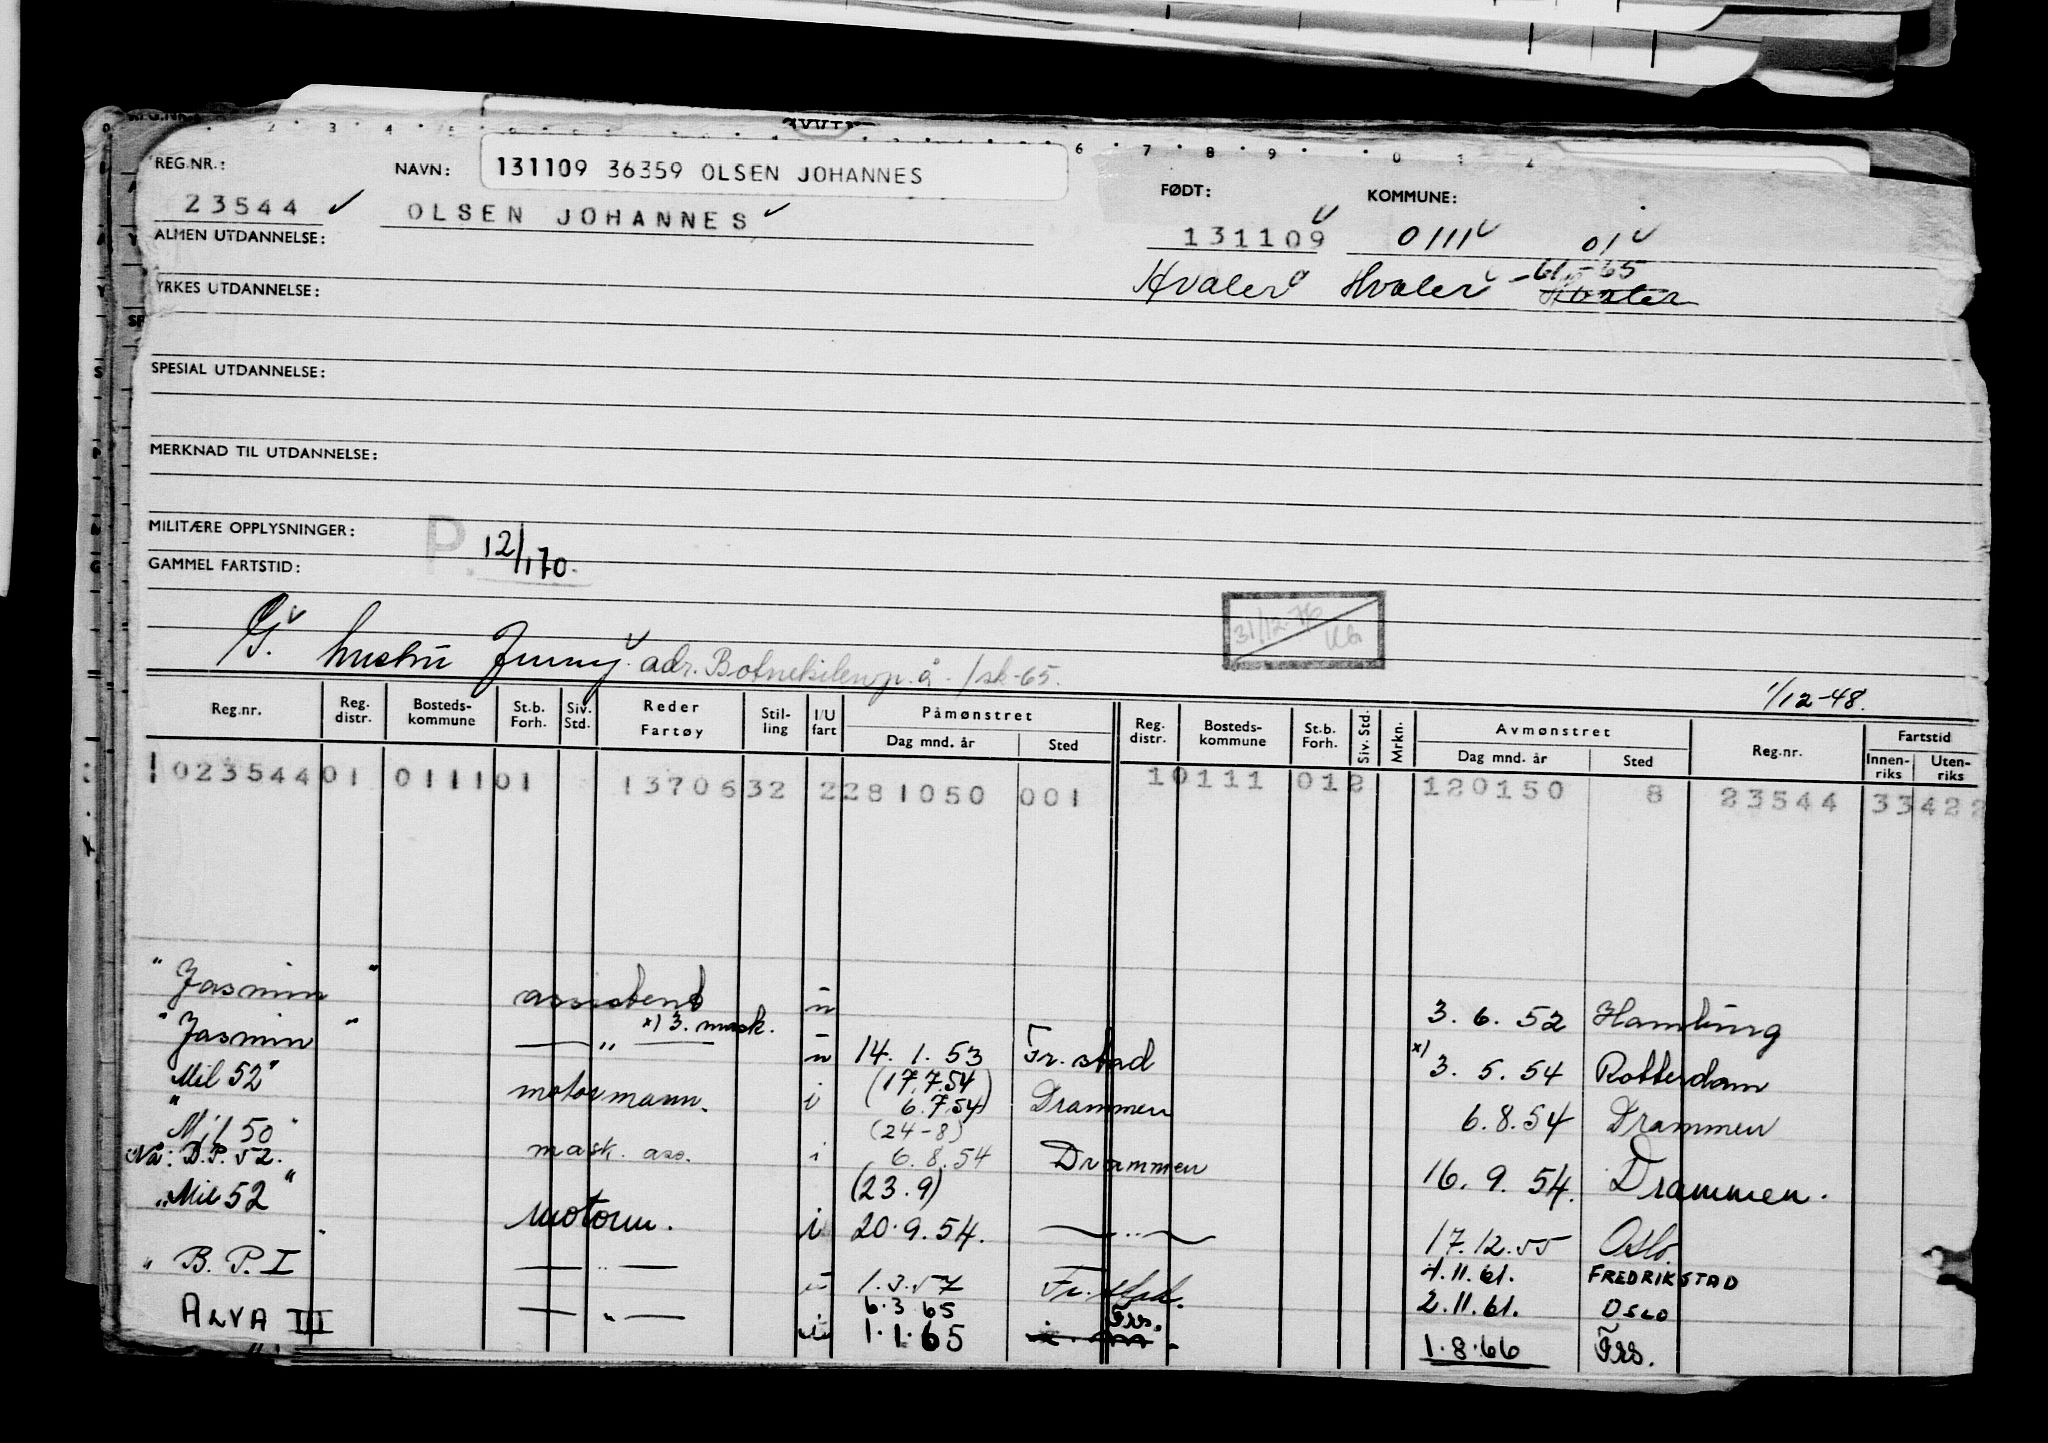 REG.NR.: NAVN: 131109 36359 OLSEN JOHANNES FØDT: KOMMUNE:
23544 OLSEN JOHANNES 131109 0111 01
ALMEN UTDANNELSE:
Hvaler Hvaler -61 -65
YRKES UTDANNELSE:
SPESIAL UTDANNELSE:
MERKNAD TIL UTDANNELSE:
MILITÆRE OPPLYSNINGER: P. 12/1 70.
GAMMEL FARTSTID:
31/12-76
G. hustru Jenny. adr. Botnekilen p.å. /sk-65.
1/12-48.
Reg.nr. Reg. distr. Bosteds-kommune St.b. Forh. Siv. Std. Reder Fartøy Stil-ling I/U fart Påmønstret Dag mnd. år Sted Reg. distr. Bosteds-kommune St.b. Forh. Siv. Std. Mrkn. Avmønstret Dag mnd. år Sted Reg.nr. Fartstid Innen-riks Uten-riks
1023544 01 0111 01 1370632 2 281050 001 1 0111 012 120150 8 23544 33 422
"Jasmin" assistent u 3.6.52 Hamburg
"Jasmin" —"— x) 3. mask. u 14.1.53 Fr.stad x) 3.5.54 Rotterdam
Mil 52" motormann. i (17.7.54) 6.7.54 Drammen 6.8.54 Drammen
"Mil 50" (24-8)
Nå: D.P. 52. mask. ass. i 6.8.54 Drammen 16.9.54. Drammen.
"Mil 52" motorm. i (23.9) 20.9.54. —"— 17.12.55 Oslo.
" B. P. I " —"— 1.3.57 Fr.stad. 4.11.61. FREDRIKSTAD
6.3.65 Frs. 2.11.61. OSLO
ALVA III —"— 1.1.65 1.8.66 Frs.